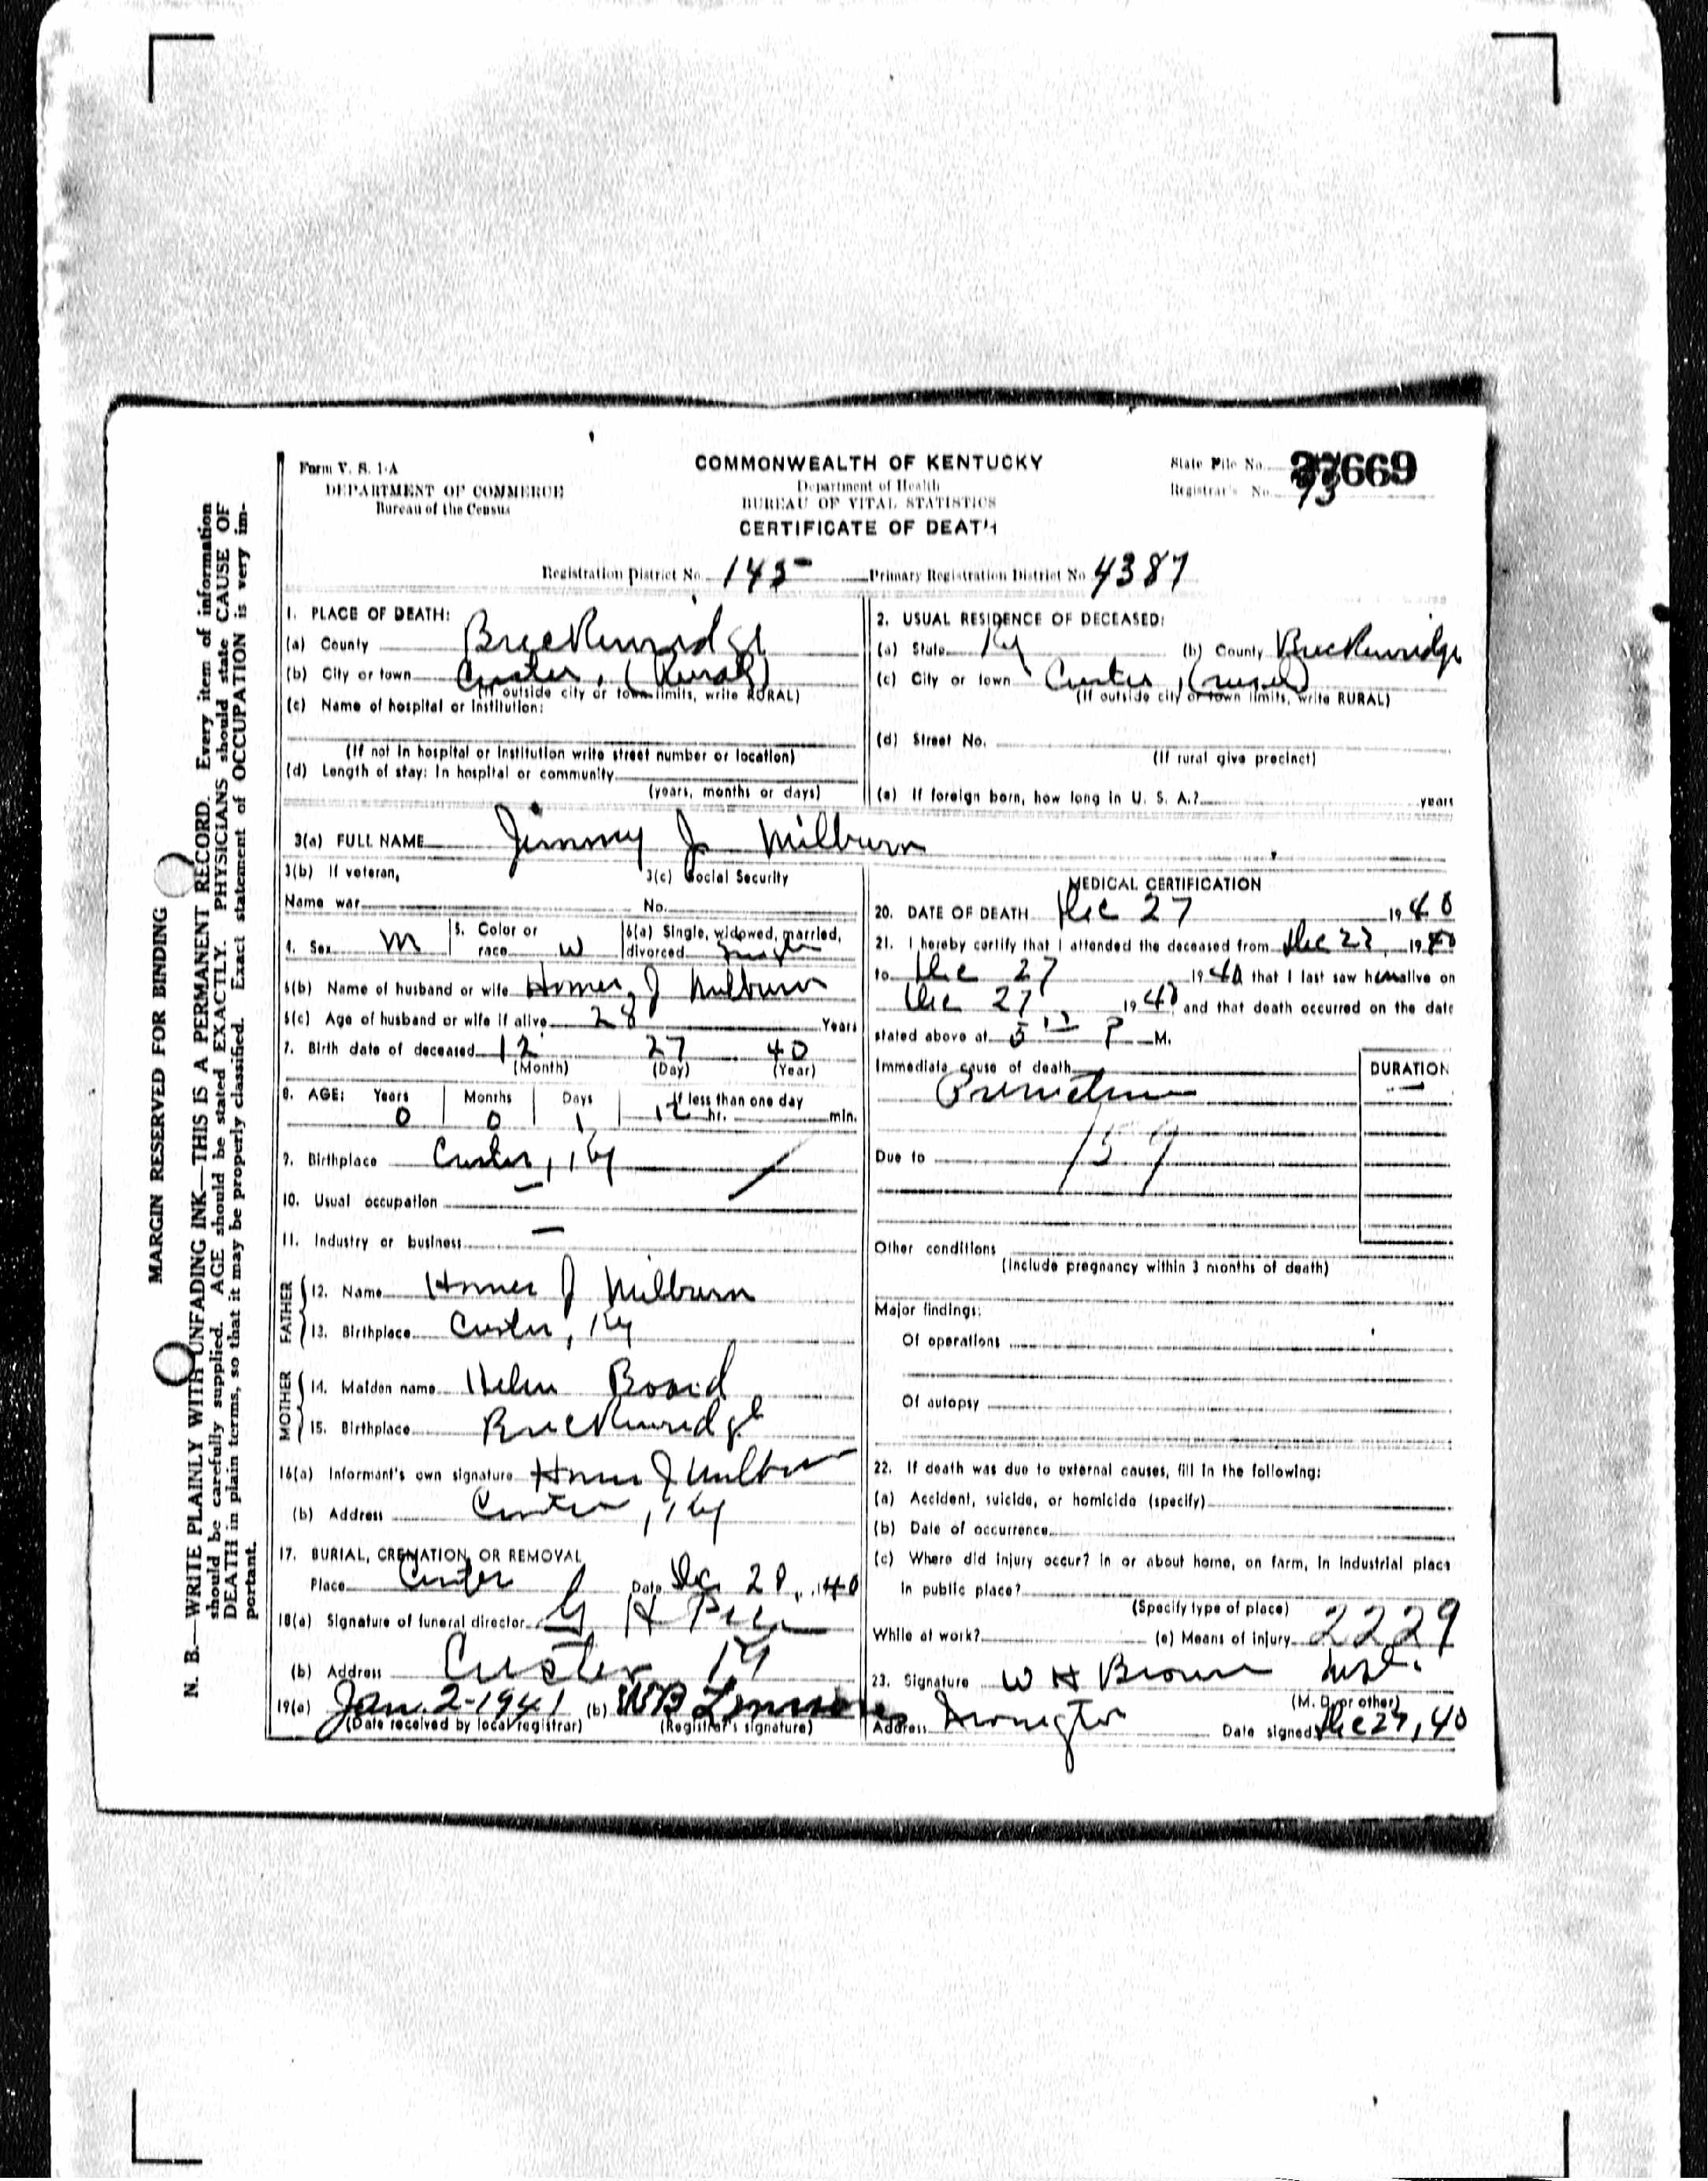 Form V. S. 1-A
DEPARTMENT OF COMMERCE
Bureau of the Census
COMMONWEALTH OF KENTUCKY
Department of Health
BUREAU OF VITAL STATISTICS
CERTIFICATE OF DEATH
State File No. 27669
Registrar's No. 93
Registration District No. 145 Primary Registration District No. 4387
MARGIN RESERVED FOR BINDING
N. B.—WRITE PLAINLY WITH UNFADING INK—THIS IS A PERMANENT RECORD. Every item of information
should be carefully supplied. AGE should be stated EXACTLY. PHYSICIANS should state CAUSE OF
DEATH in plain terms, so that it may be properly classified. Exact statement of OCCUPATION is very im-
portant.
1. PLACE OF DEATH:
(a) County Breckenridge
(b) City or town Custer, (Rural)
(If outside city or town limits, write RURAL)
(c) Name of hospital or institution:
(If not in hospital or institution write street number or location)
(d) Length of stay: In hospital or community
(years, months or days)
2. USUAL RESIDENCE OF DECEASED:
(a) State Ky (b) County Breckenridge
(c) City or town Custer, (rural)
(If outside city or town limits, write RURAL)
(d) Street No.
(If rural give precinct)
(e) If foreign born, how long in U. S. A.? years
3(a) FULL NAME Jimmy J Milburn
3(b) If veteran, 3(c) Social Security
Name war No.
4. Sex M 5. Color or race W 6(a) Single, widowed, married, divorced Single
6(b) Name of husband or wife Homer J Milburn
6(c) Age of husband or wife if alive 28 Years
7. Birth date of deceased 12 27 40
(Month) (Day) (Year)
8. AGE: Years Months Days If less than one day
0 0 1 12 hr. min.
9. Birthplace Custer, Ky
10. Usual occupation —
11. Industry or business —
FATHER
12. Name Homer J Milburn
13. Birthplace Custer, Ky
MOTHER
14. Maiden name Helen Board
15. Birthplace Breckenridge
16(a) Informant's own signature Homer J Milburn
(b) Address Custer, Ky
17. BURIAL, CREMATION, OR REMOVAL
Place Custer Date Dec 28, 1940
18(a) Signature of funeral director G H
(b) Address Custer Ky
19(a) Jan. 2-1941 (b) WB
(Date received by local registrar) (Registrar's signature)
MEDICAL CERTIFICATION
20. DATE OF DEATH Dec 27 1940
21. I hereby certify that I attended the deceased from Dec 27, 1940
to Dec 27 1940 that I last saw him alive on
Dec 27 1940 and that death occurred on the date
stated above at 5 P M.
Immediate cause of death DURATION
Premature —
159
Due to
Other conditions
(Include pregnancy within 3 months of death)
Major findings:
Of operations
Of autopsy
22. If death was due to external causes, fill in the following:
(a) Accident, suicide, or homicide (specify)
(b) Date of occurrence
(c) Where did injury occur? in or about home, on farm, in industrial place
in public place?
(Specify type of place)
While at work? (e) Means of injury 2229
23. Signature W H Brown
(M. D. or other)
Address Irvington Date signed Dec 27, 40